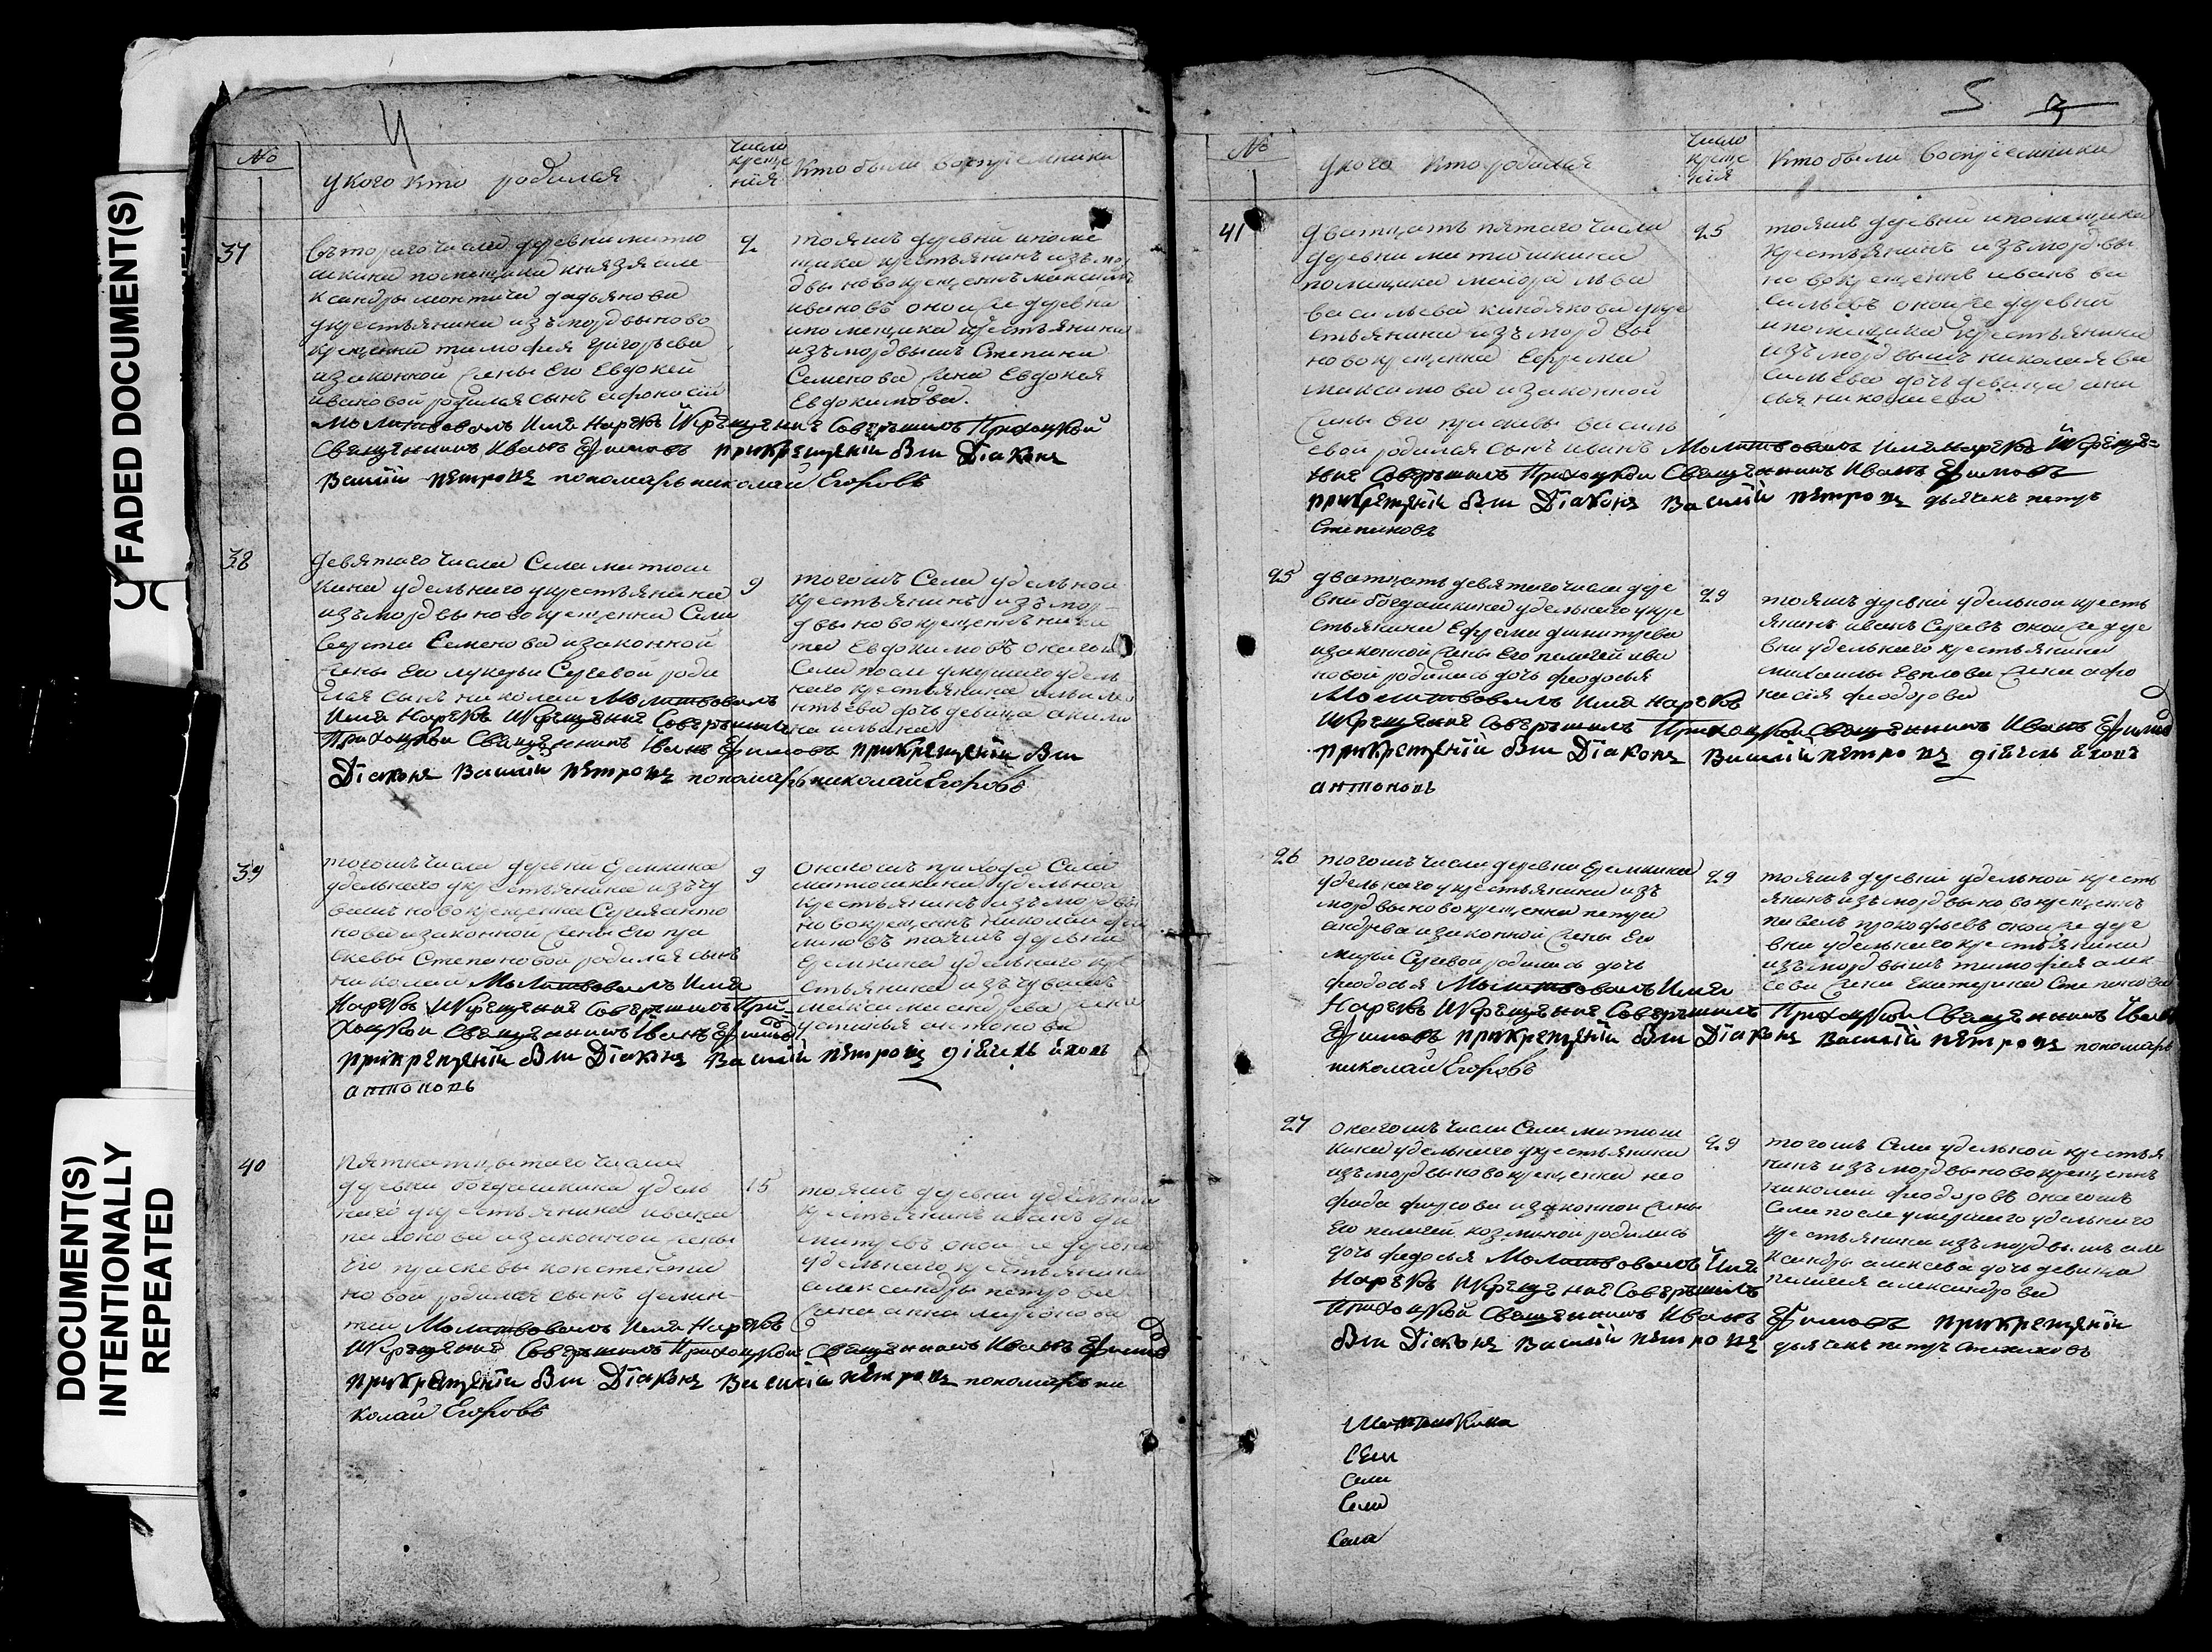 FADED DOCUMENT(S)
DOCUMENT(S)
INTENTIONALLY
REPEATED
4
№
у кого кто родился
число
креще
нія
Кто были воспріемники
37
вътораго числа деревни матю
шкина помещика князя але
ксандры
дадьянова
крестьянина изъ мордвы ново
крещенна тимофея григорьева
изаконной жены Его Евдокеи
ивановой родился сынъ афонасей
Молитвовалъ Имя Нарекъ И Крещение Совершилъ Приходкой
Священникъ Иванъ Ефимовъ при крещеніи были Діаконъ
Василій петровъ пономарь николай Егоровъ
2
тояжъ деревни и поме
щика крестьянинъ изъ мо
двы новокрещеннъ максимъ
ивановъ оной же деревни
и помещика крестьянина
изъ мордвыжъ Степана
Семенова жена Евдокея
Евдокимова.
38
девятого числа Села матюш
кина удельнаго крестьянина
изъ мордвы новокрещенна Сели
верста Семенова изаконной
жены Его лукерьи Сергевой роди
лся сынъ николай Молитвовалъ
Имя Нарекъ И Крещение Совершилъ
Приходкой Священникъ Иванъ Ефимовъ при крещеніи были
Діаконъ Василій петровъ пономарь николай Егоровъ
9
тогожъ Села удельной
крестьянинъ изъ мор
двы новокрещеннъ ники
та Евдокимовъ оногожъ
Села после умершего удель
наго крестьянина ильи ле
онтьева дочь девица акили
на ильина
39
тогожъ числа деревни Еделкина
удельнаго крестьянина изъ чу
вашъ новокрещенна Сергея анто
нова изаконной жены Его пра
сковьи Степановой родился сынъ
николай Молитвовалъ Имя
Нарекъ И Крещение Совершилъ При-
ходкой Священникъ Иванъ Ефимовъ
при крещеніи были Діаконъ Василій петровъ діячекъ
антоновъ
9
оногожъ прихода Села
матюшкина удельной
крестьянинъ изъ мордвы
новокрещеннъ николай
тояжъ деревни
Еделкина удельнаго кре
стьянина изъ чувашъ
максима андреева жена
устинья антонова
40
пятнатцатого числа
деревни богдашкина удель
наго крестьянина ивана
изаконной жены
Его прасковьи константи
новой родился сынъ
Молитвовалъ Имя Нарекъ
И Крещение Совершилъ Приходкой Священникъ Иванъ Ефимовъ
при крещеніи были Діаконъ Василій петровъ пономарь ни
колай Егоровъ
15
тояжъ деревни удельной
крестьянинъ иванъ ди
митревъ оной же деревни
удельнаго крестьянина
александры петрова
жена анна миронова
5
3
№
у кого кто родился
число
креще
нія
Кто были воспріемники
41
дватцать пятого числа
деревни матюшкина
помещика маіора льва
васильева киндякова кре
стьянина изъ мордвы
новокрещенна Ефрема
максимова изаконной
жены Его прасковьи василь
евой родился сынъ иванъ Молитвовалъ Имя Нарекъ И Креще=
ние Совершилъ Приходкой Священникъ Иванъ Ефимовъ
при крещеніи были Діаконъ Василій петровъ дьячекъ петръ
Степановъ
25
тояжъ деревни и помещика
крестьянинъ изъ мордвы
новокрещеннъ иванъ ва
сильевъ оной же деревни
и помещика крестьянина
изъ мордвыжъ николая ва
сильева дочь девица ани
сья николаева
25
дватцать девятого числа дере
вни богдашкина удельнаго кре
стьянина Ефрема димитрева
изаконной жены Его пелагеи ива
новой родилась дочь феодосья
Молитвовалъ Имя Нарекъ
И Крещение Совершилъ Приходкой Священникъ Иванъ Ефимовъ
при крещеніи были Діаконъ Василій петровъ діячекъ
антоновъ
29
тояжъ деревни удельной кресть
янинъ иванъ Сергевъ оной же дере
вни удельнаго крестьянина
михаилы Евплова жена афо
насія феодорова
26
тогожъ числа деревни Еделкина
удельнаго крестьянина изъ
мордвы новокрещенна петра
андреева изаконной жены Его
марьи Сергевой родилась дочь
феодосья Молитвовалъ Имя
Нарекъ И Крещение Совершилъ Приходкой Священникъ Иванъ
Ефимовъ при крещеніи были Діаконъ Василій петровъ пономарь
николай Егоровъ
29
тояжъ деревни удельной кресть
янинъ изъ мордвы новокрещеннъ
павелъ прокофьевъ оной же дере
вни удельнаго крестьянина
изъ мордвыжъ тимофея алек
сеева жена Екатерина Степанова
27
оногожъ числа Села матюш
кина удельнаго крестьянина
изъ мордвы новокрещенна нео
фида фирсова изаконной жены
Его пелагеи козминой родилась
дочь федосья Молитвовалъ Имя
Нарекъ И Крещение Совершилъ
Приходкой Священникъ Иванъ Ефимовъ при крещеніи
были Діаконъ Василій петровъ дьячекъ петръ Степановъ
29
тогожъ Села удельной крестья
нинъ изъ мордвы новокрещеннъ
николай феодоровъ оногожъ
Села после умершего удельнаго
крестьянина изъ мордвыжъ але
ксандры алексеева дочь девица
пелагея александрова
Матюшкина
Села
Села
Села
Села